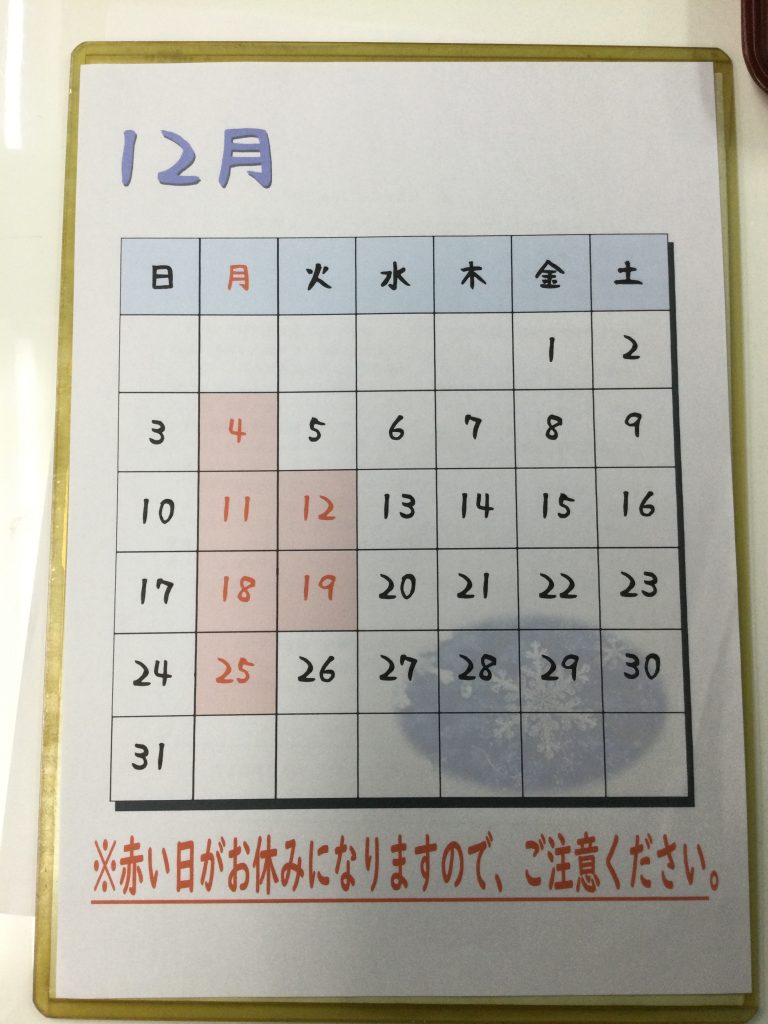 12月
日 月 火 水 木 金 土
1 2
3 4 5 6 7 8 9
10 11 12 13 14 15 16
17 18 19 20 21 22 23
24 25 26 27 28 29 30
31
※赤い日がお休みになりますので、ご注意ください。